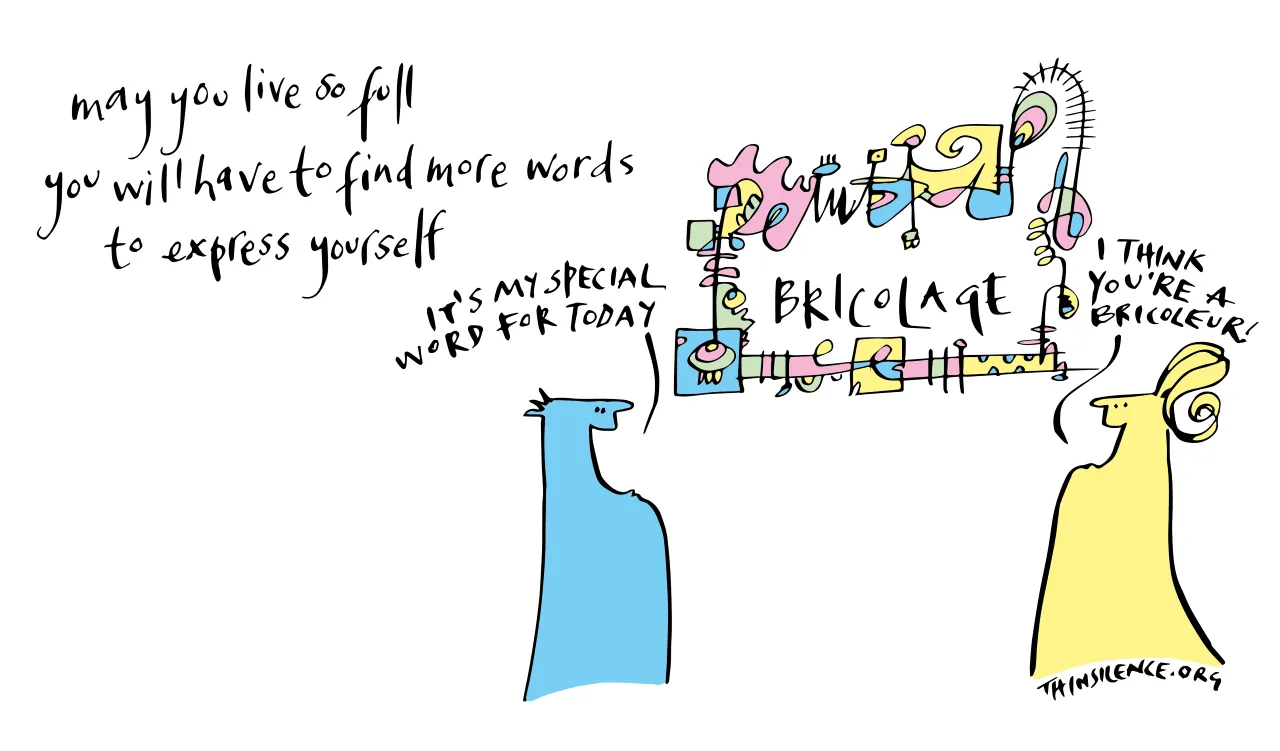 may you live so full
you will have to find more words
to express yourself
IT'S MY SPECIAL
WORD FOR TODAY
BRICOLAGE
I THINK
YOU'RE A
BRICOLEUR!
THINSILENCE.ORG